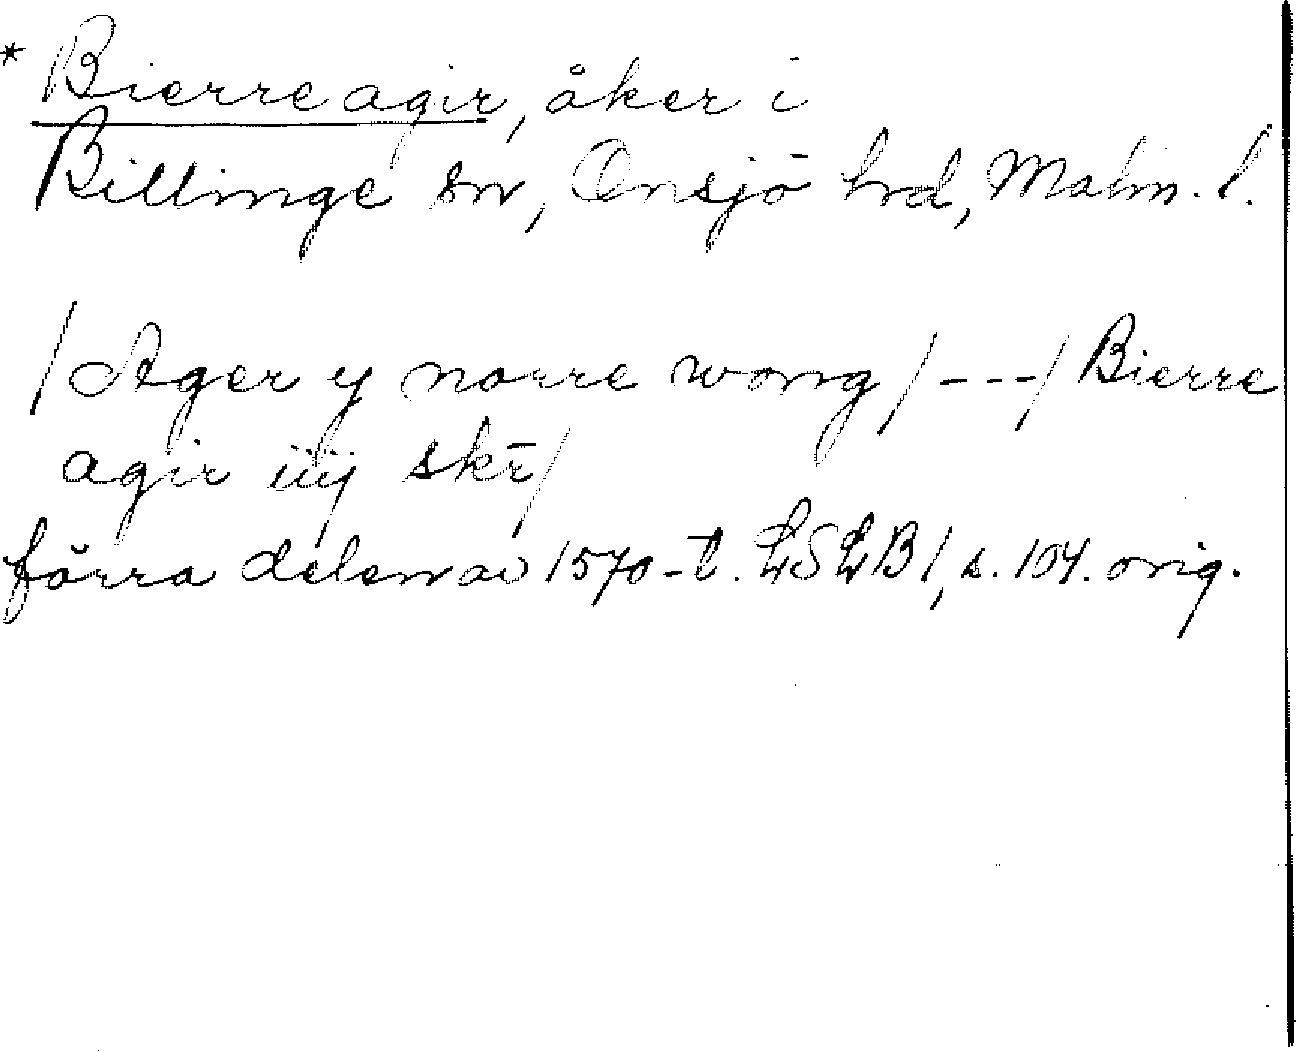 * Bierre agir, åker i
Billinge sn, Onsjö hrd, Malm. l.
/Ager y norre wong/---/Bierre
agir iiij skr̄/
förra delen av 1570-t. LSLB 1, s. 104. orig.